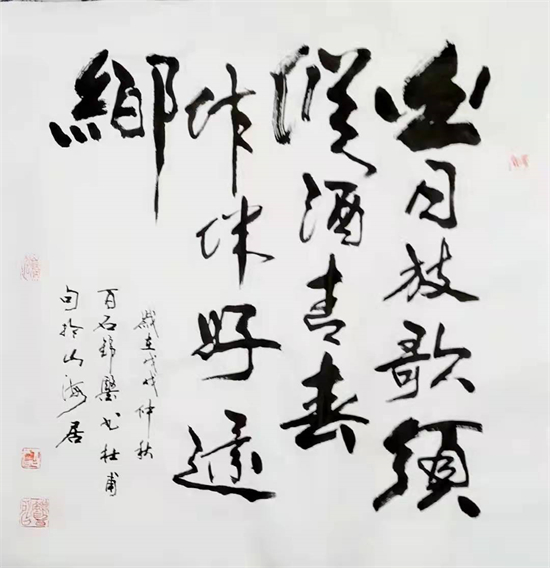 白日放歌須
縱酒青春
作伴好還
鄉
歲在戊戌仲秋
百石錦 書杜甫
句於山海居